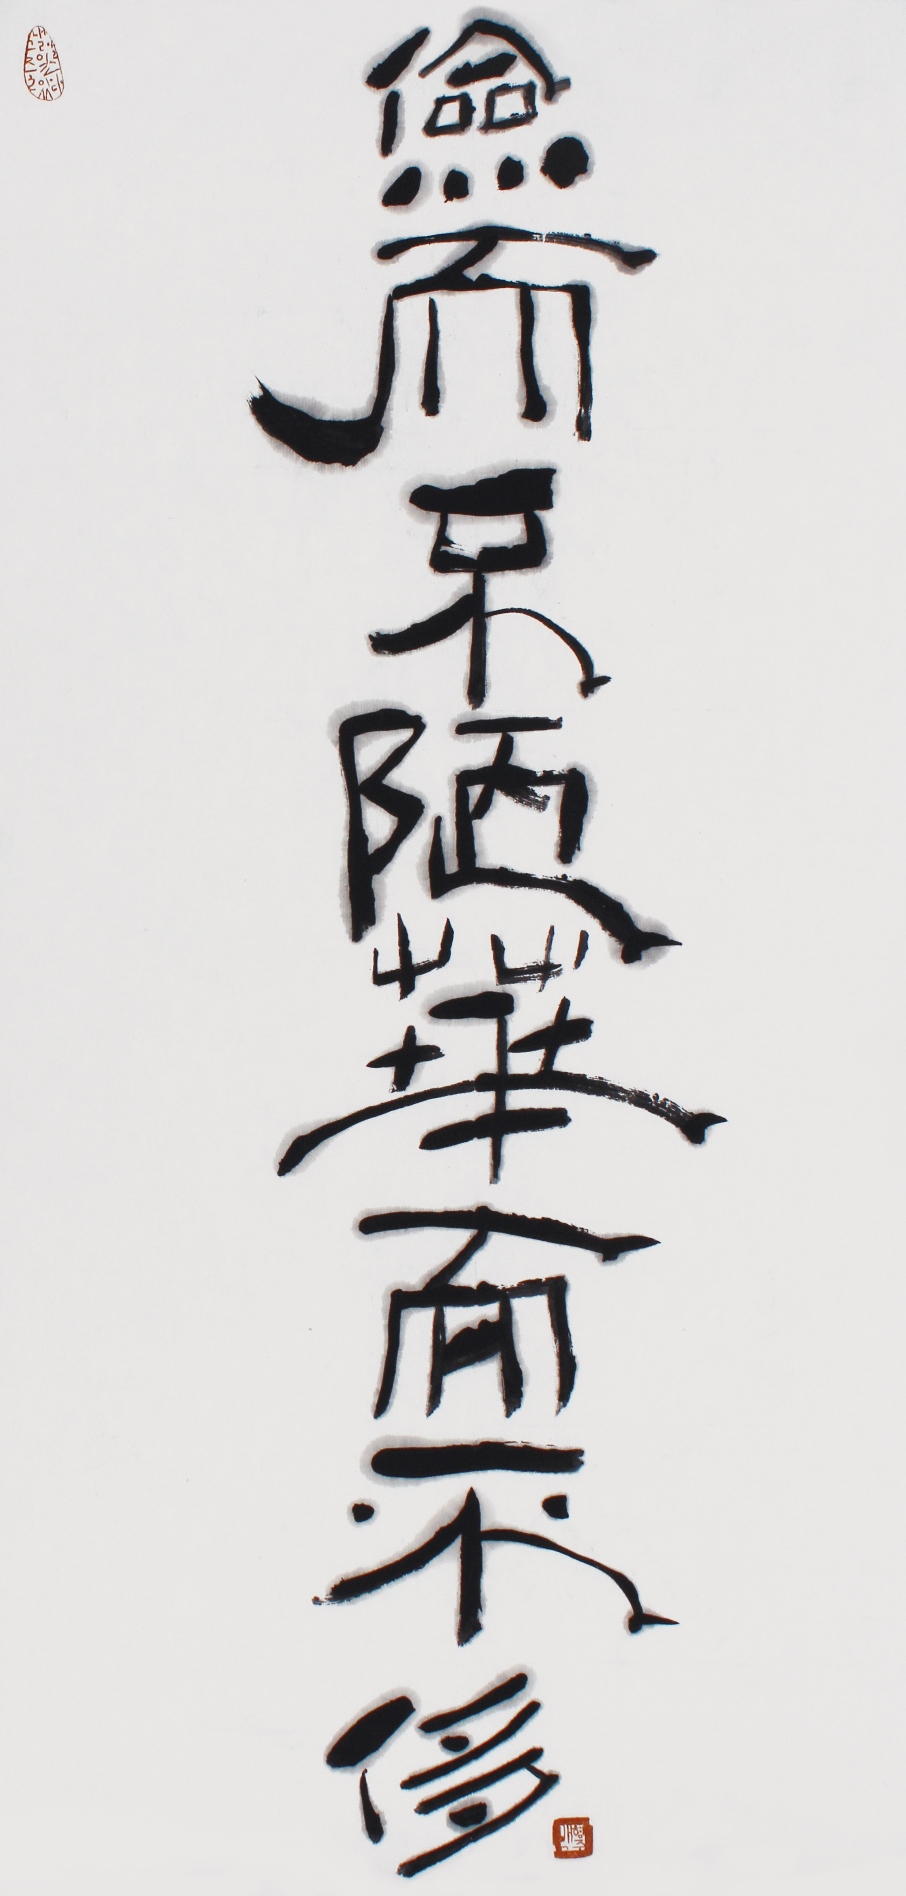 儉而不陋華而不侈